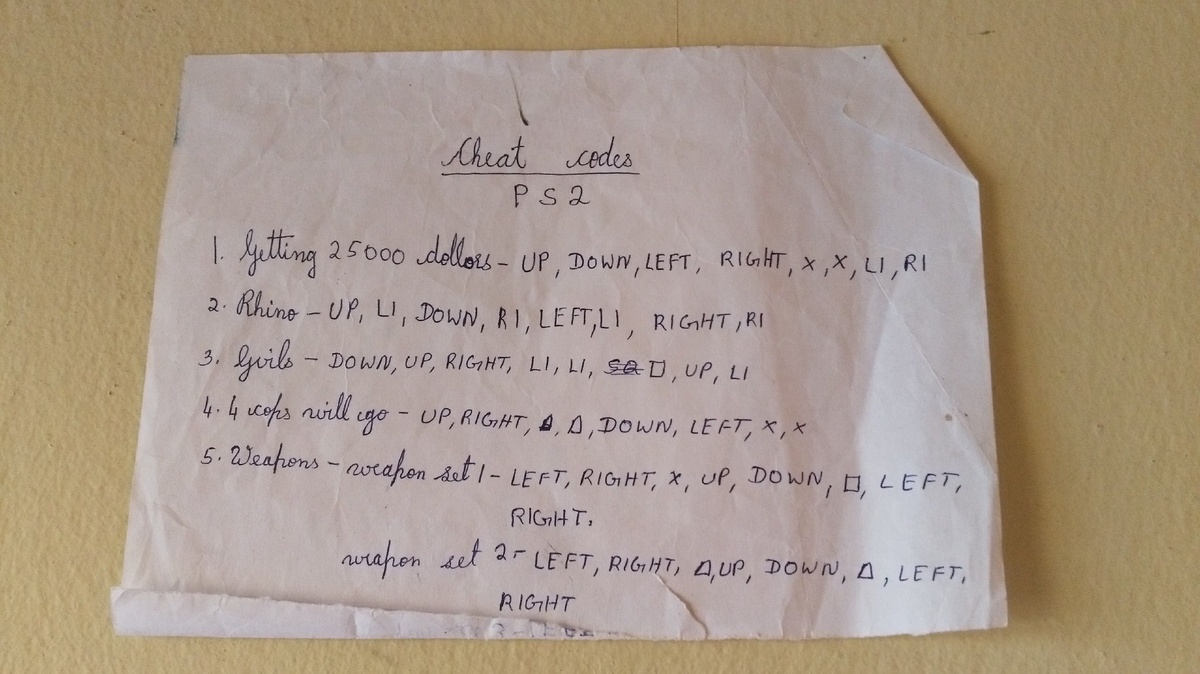 Cheat codes
PS2
1. Getting 25000 dollors - UP, DOWN, LEFT, RIGHT, X, X, L1, R1
2. Rhino - UP, L1, DOWN, R1, LEFT, L1, RIGHT, R1
3. Girls - DOWN, UP, RIGHT, L1, L1, □, UP, L1
4. 4 cops will go - UP, RIGHT, △, △, DOWN, LEFT, X, X
5. Weapons - weapon set 1 - LEFT, RIGHT, X, UP, DOWN, □, LEFT,
RIGHT.
weapon set 2 - LEFT, RIGHT, △, UP, DOWN, △, LEFT,
RIGHT